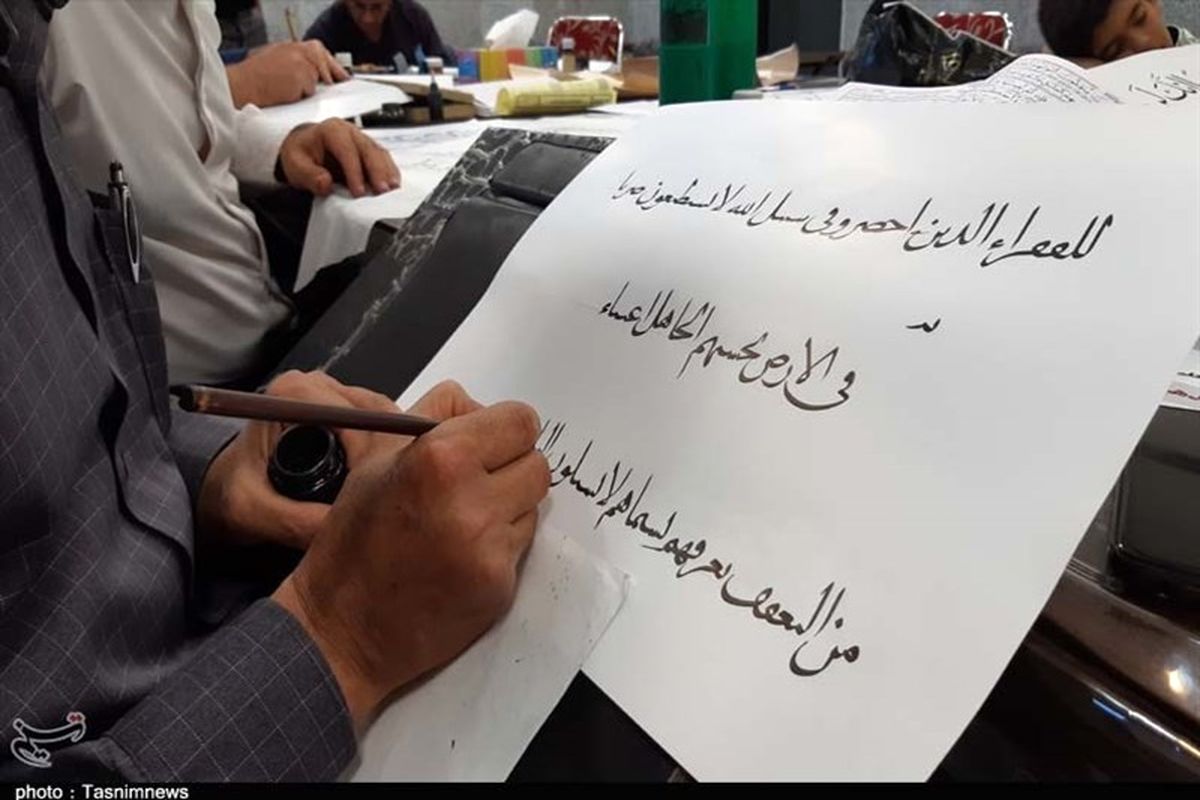 للفقراء الذين احصروا فى سبيل الله لا يستطيعون ضربا
فى الارض يحسبهم الجاهل اغنياء
من التعفف تعرفهم بسيماهم لا يسئلون
تسنیم
photo : Tasnimnews